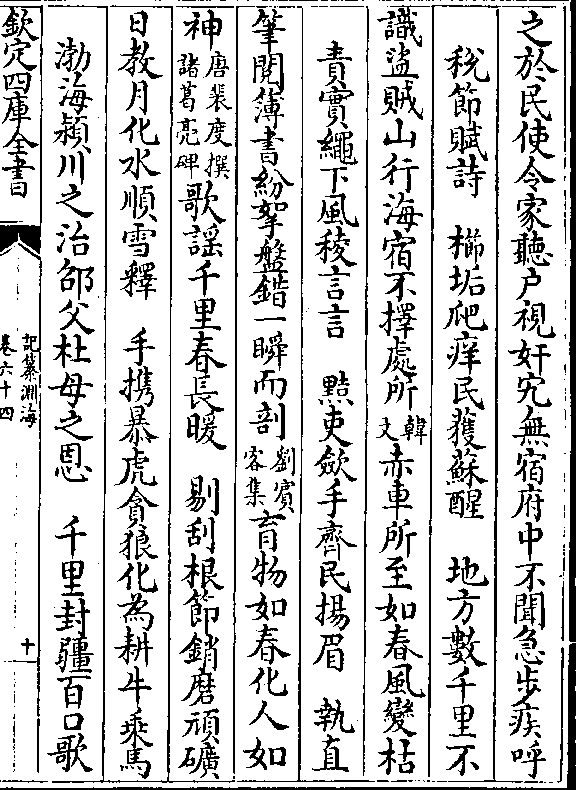 之於民使令家聽户視奸宄無宿府中不聞急步疾呼
税節賦詩　櫛垢爬痒民獲蘇醒　地方數千里不
識盜賊山行海宿不擇處所韓文赤車所至如春風變枯
責實繩下風稜言言　黠吏歛手齊民揚眉　執直
筆閱簿書紛拏盤錯一瞬而剖劉賓客集育物如春化人如
神唐裴度撰諸葛亮碑歌謡千里春長暖　剔刮根節銷磨頑礦
日教月化水順雪釋　手携暴虎貪狼化為耕牛乘馬
渤海潁川之治邵父杜母之恩　千里封疆百口歌
欽定四庫全書
記纂淵海
卷六十四
十